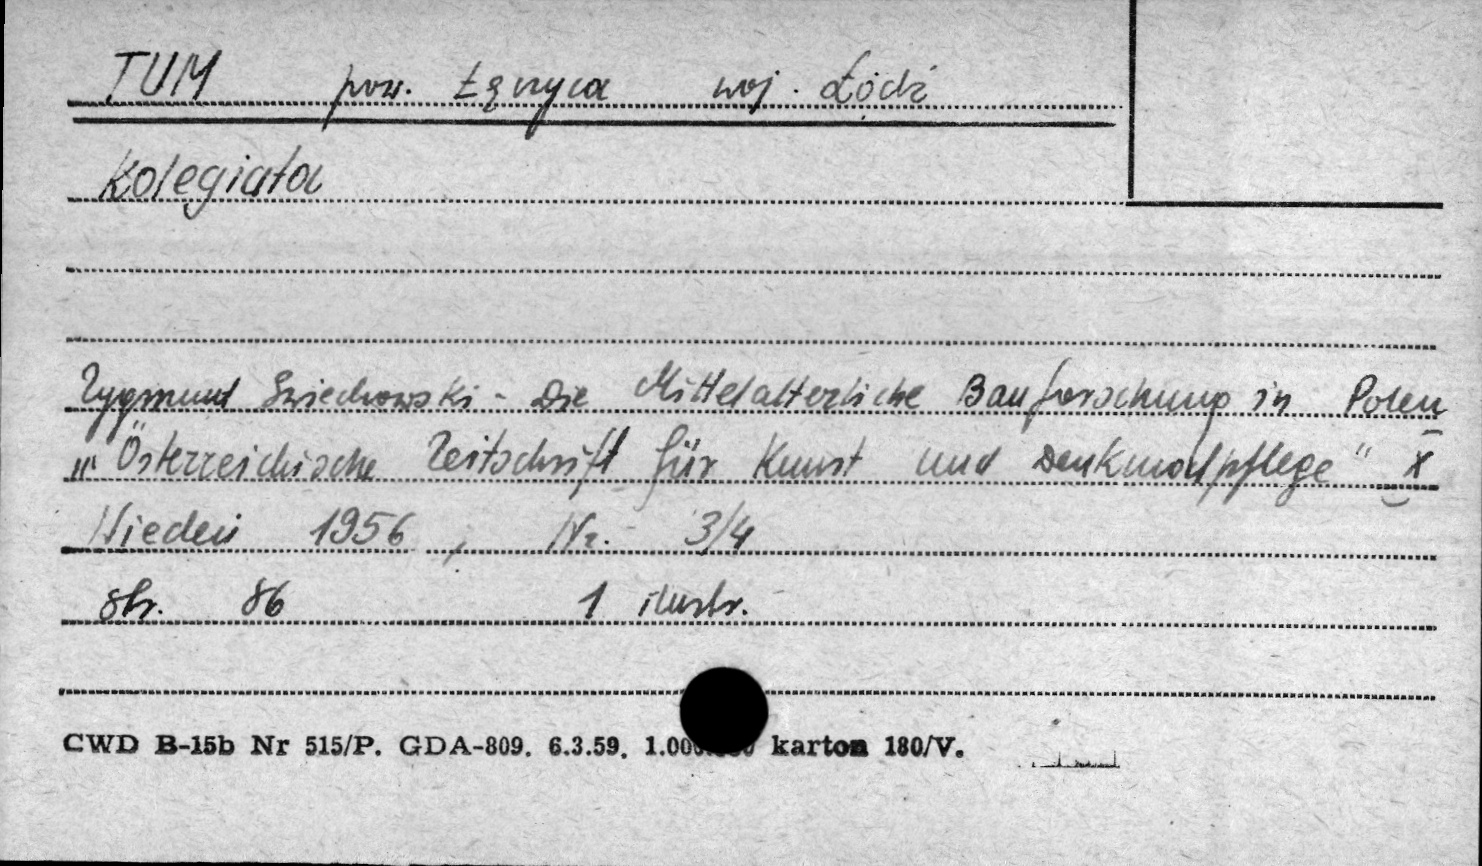 TUM pow. Łęczyca woj. Łódź
Kolegiata
Zygmunt Świechowski - Die Mittelalterliche Bauforschung in Polen
„Österreichische Zeitschrift für Kunst und Denkmalpflege" X
Wiedeń 1956, Nr. 3/4
str. 86 1 ilustr.
CWD B-15b Nr 515/P. GDA-809. 6.3.59. karton 180/V.